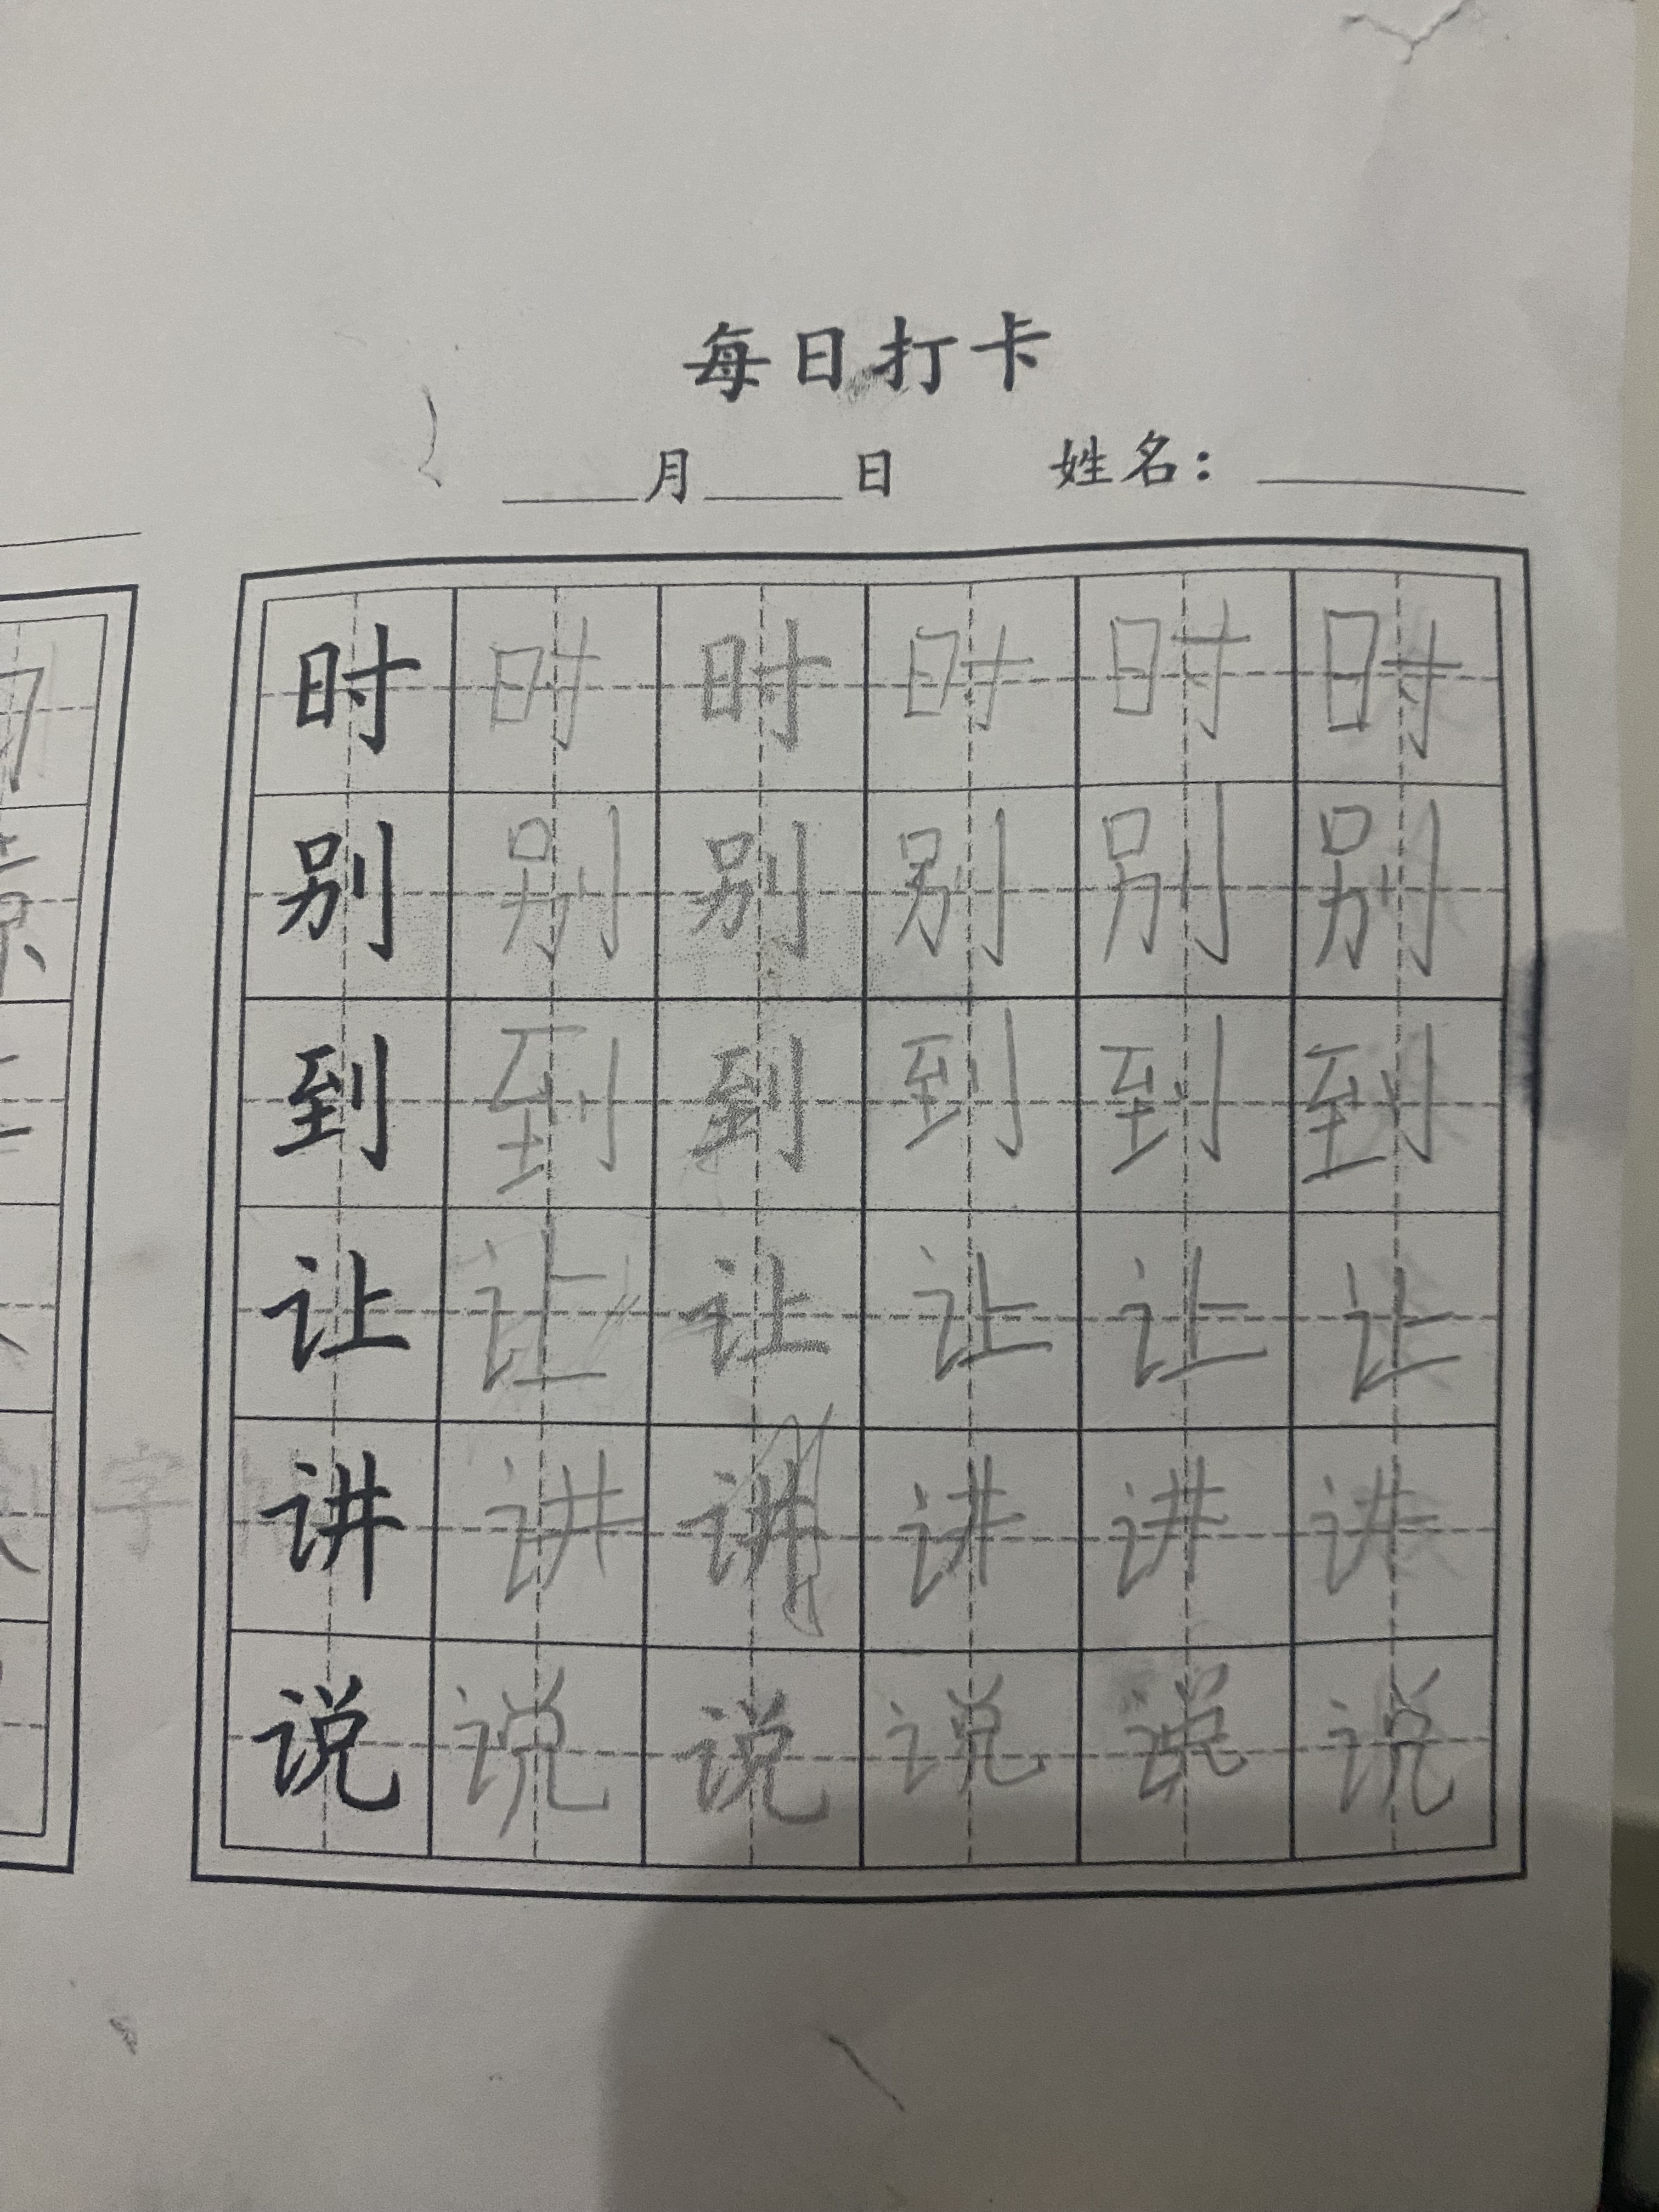 每日打卡
____月____日 姓名：________
时 时 时 时 时 时
别 别 别 别 别 别
到 到 到 到 到 到
让 让 让 让 让 让
讲 讲 讲 讲 讲 讲
说 说 说 说 说 说
字